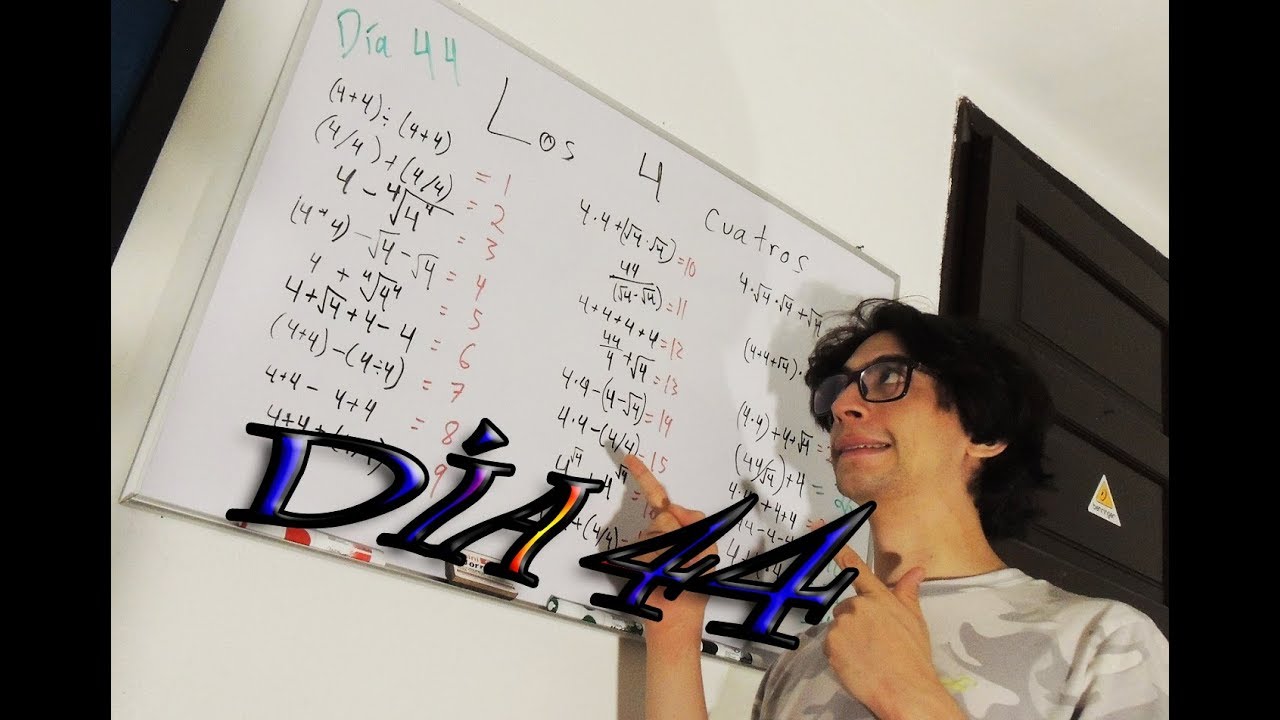 Día 44
Los 4 cuatros
(4+4)÷(4+4) = 1
(4/4)+(4/4) = 2
4-∜4⁴ = 3
(4+4)-√4-√4 = 4
4+∜4⁴ = 5
4+√4+4-4 = 6
(4+4)-(4÷4) = 7
4+4-4+4 = 8
9
4·4+(√4·√4) =10
44/(√4·√4) =11
4+4+4+4 =12
44/4+√4 =13
4·4-(4-√4) =14
4·4-(4/4) =15
+(4/4)-
4·√4·√4+√4
(4+4+√4)·
(4·4)+4+√4 =
(44/√4)+4 =
+4+4 =
DÍA 44